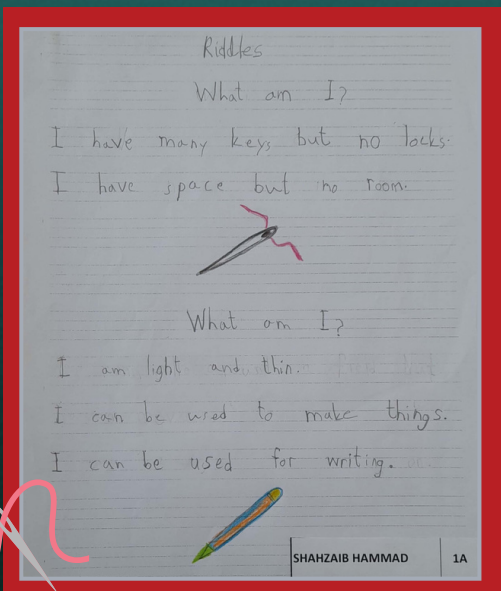 Riddles
What am I?
I have many keys but no locks.
I have space but no room.
What am I?
I am light and thin.
I can be used to make things.
I can be used for writing.
SHAHZAIB HAMMAD 1A